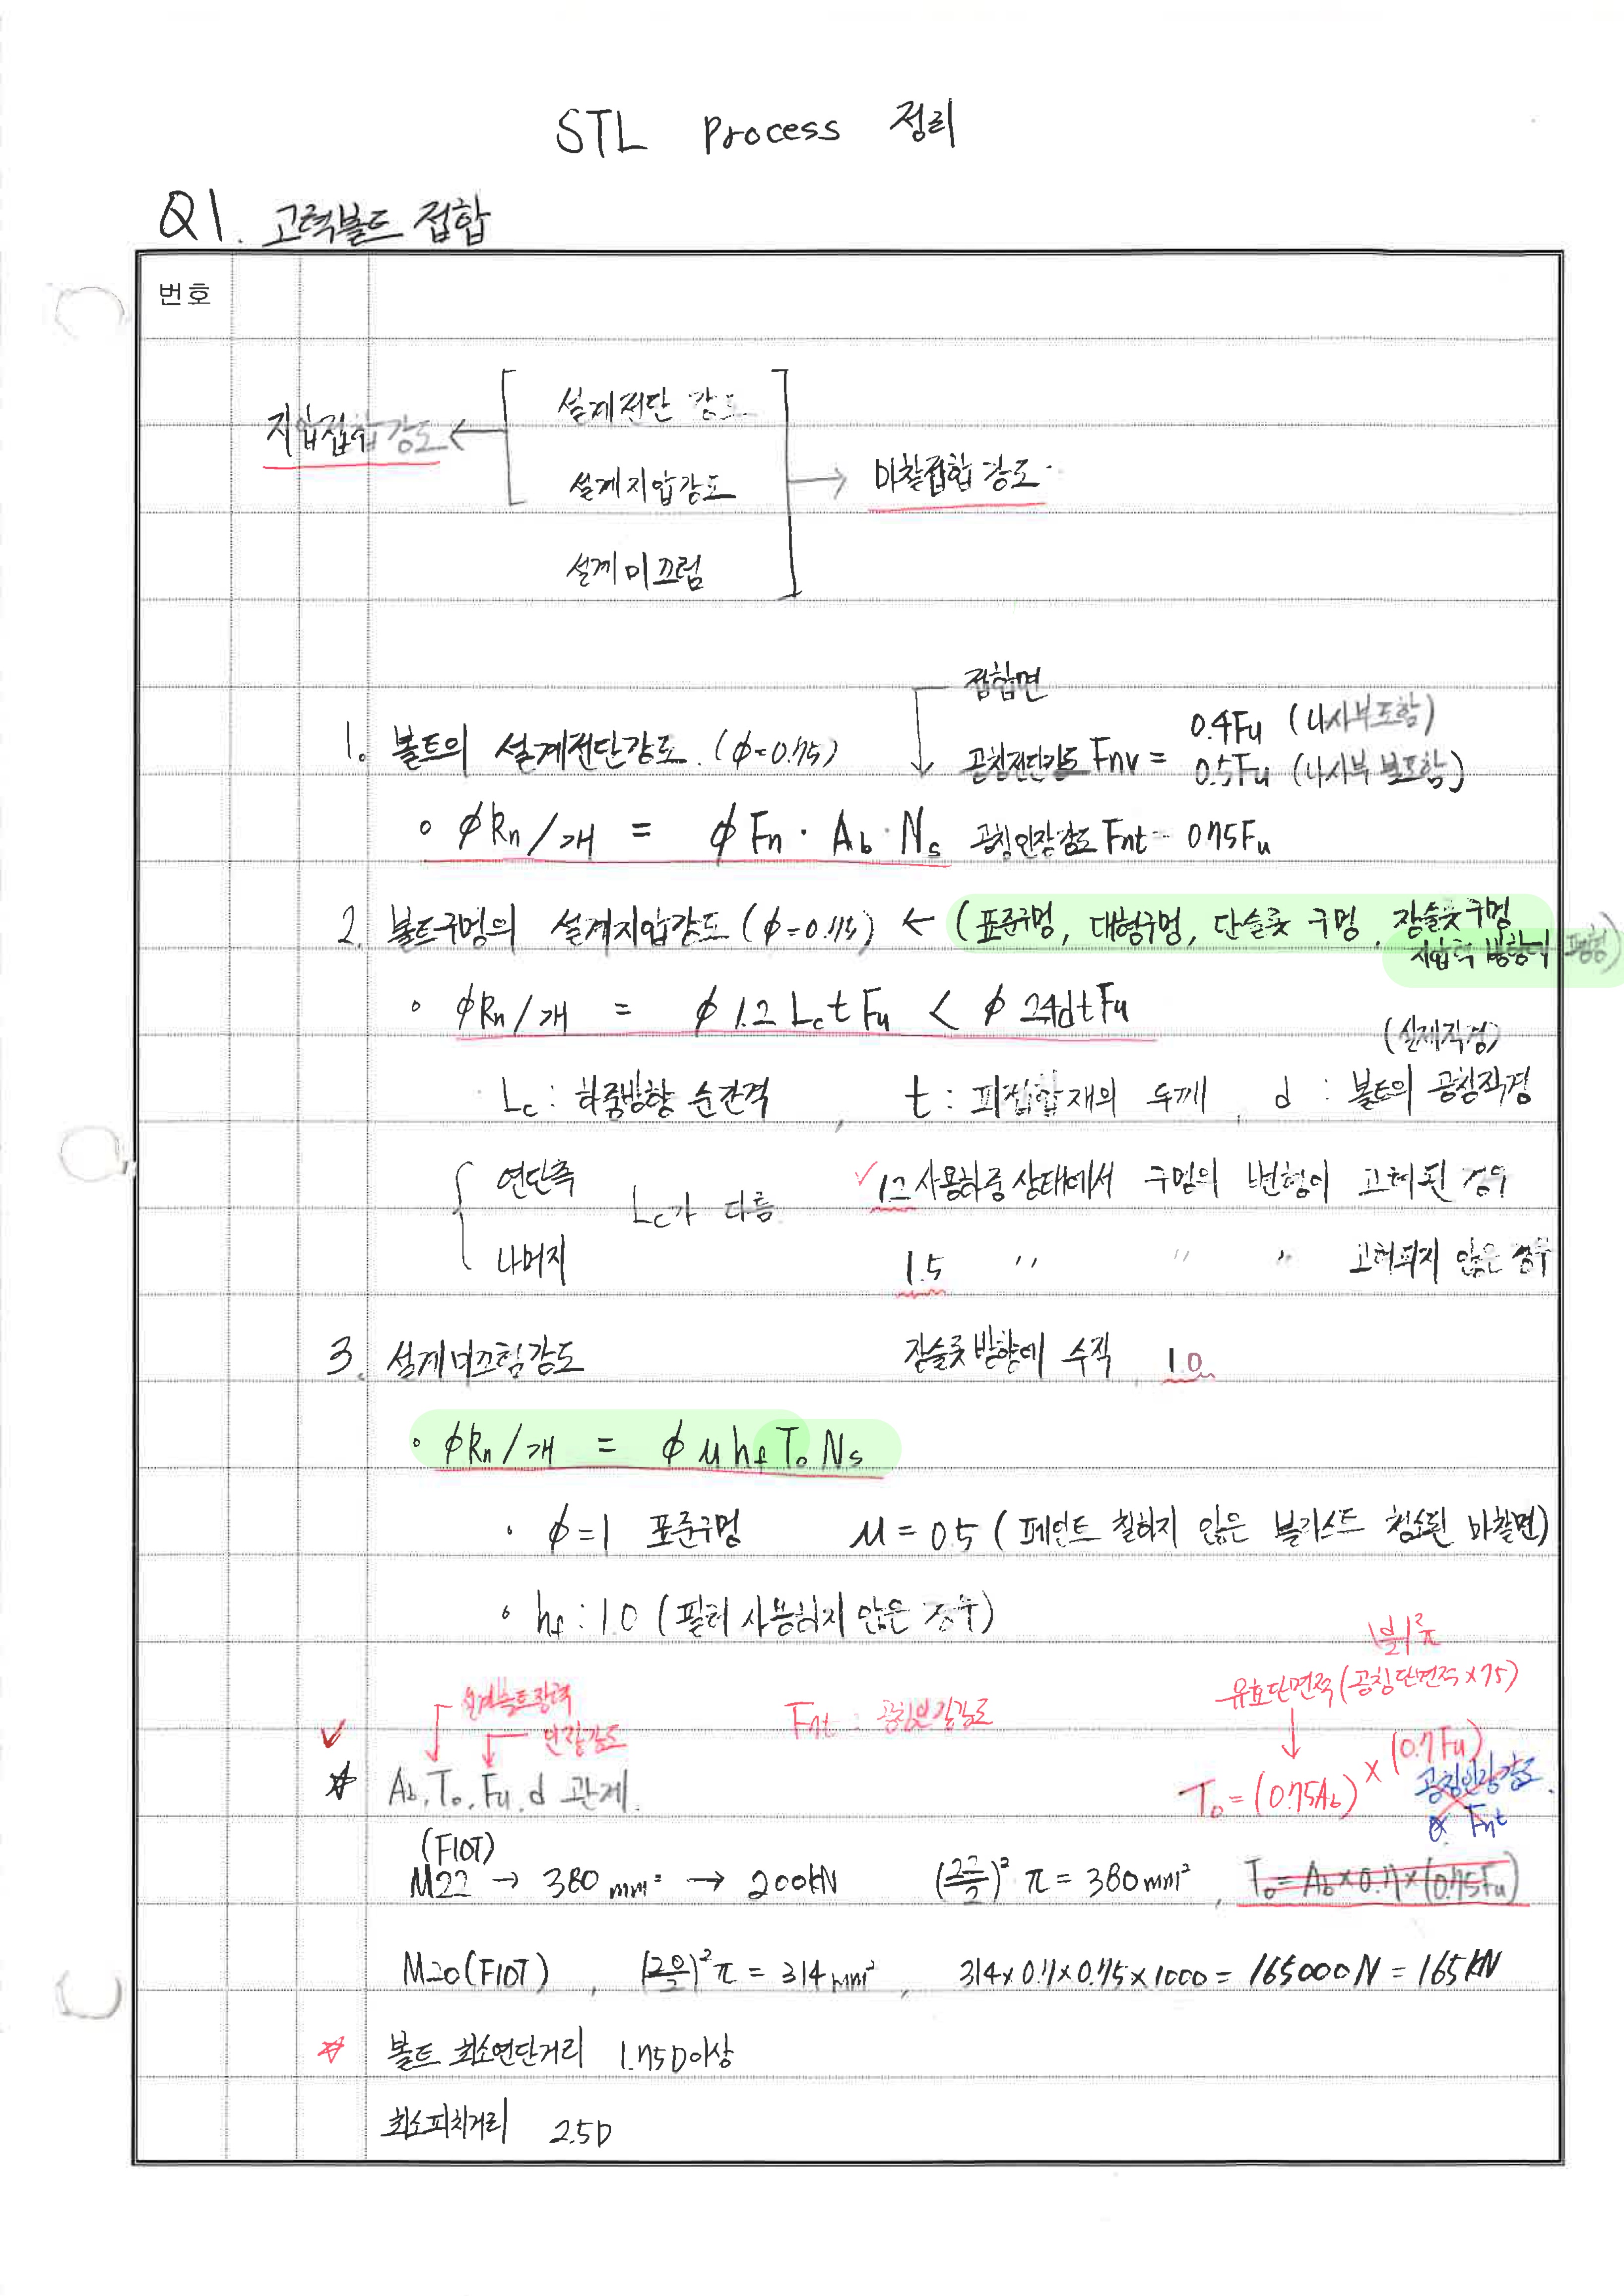 STL process 정리
Q1. 고력볼트 접합
번호
설계전단 강도
지압접합강도 ←
설계지압강도 → 마찰접합 강도
설계미끄럼
접합면
1. 볼트의 설계전단강도. (ϕ=0.75) 공칭전단강도 Fnv = 0.4Fu (나사부포함)
0.5Fu (나사부 불포함)
∘ ϕRn/개 = ϕFn · Ab · Ns 공칭인장강도 Fnt = 0.75Fu
2. 볼트구멍의 설계지압강도 (ϕ=0.75) ← (표준구멍, 대형구멍, 단슬롯 구멍, 장슬롯구멍
지압력 방향에 평행)
∘ ϕRn/개 = ϕ1.2 Lc t Fu < ϕ 2.4dtFu
(실제직경)
Lc : 하중방향 순간격, t : 피접합재의 두께, d : 볼트의 공칭직경
연단측 ✓1.2 사용하중 상태에서 구멍의 변형이 고려된 경우
Lc가 다름
나머지 1.5 〃 〃 〃 고려되지 않은 경우
3. 설계미끄럼강도 장슬롯방향에 수직 1.0
· ϕRn/개 = ϕ μ hf To Ns
· ϕ=1 표준구멍 μ = 0.5 (페인트 칠하지 않은 블라스트 청소된 마찰면)
∘ hf : 1.0 (필러 사용하지 않은 경우)
유효단면적 (공칭단면적×75)
설계볼트장력 Fnt : 공칭인장강도
✓ 인장강도
☆ Ab, To, Fu, d 관계. To = (0.75Ab) × (0.7Fu)
공칭인장강도
Fnt
(F10T)
M22 → 380mm² → 200kN (22/2)² π = 380mm², To = Ab×0.7×(0.75Fu)
M20(F10T), (20/2)² π = 314mm², 314×0.7×0.75×1000 = 165000N = 165kN
☆ 볼트 최소연단거리 1.75D이상
최소피치거리 2.5D